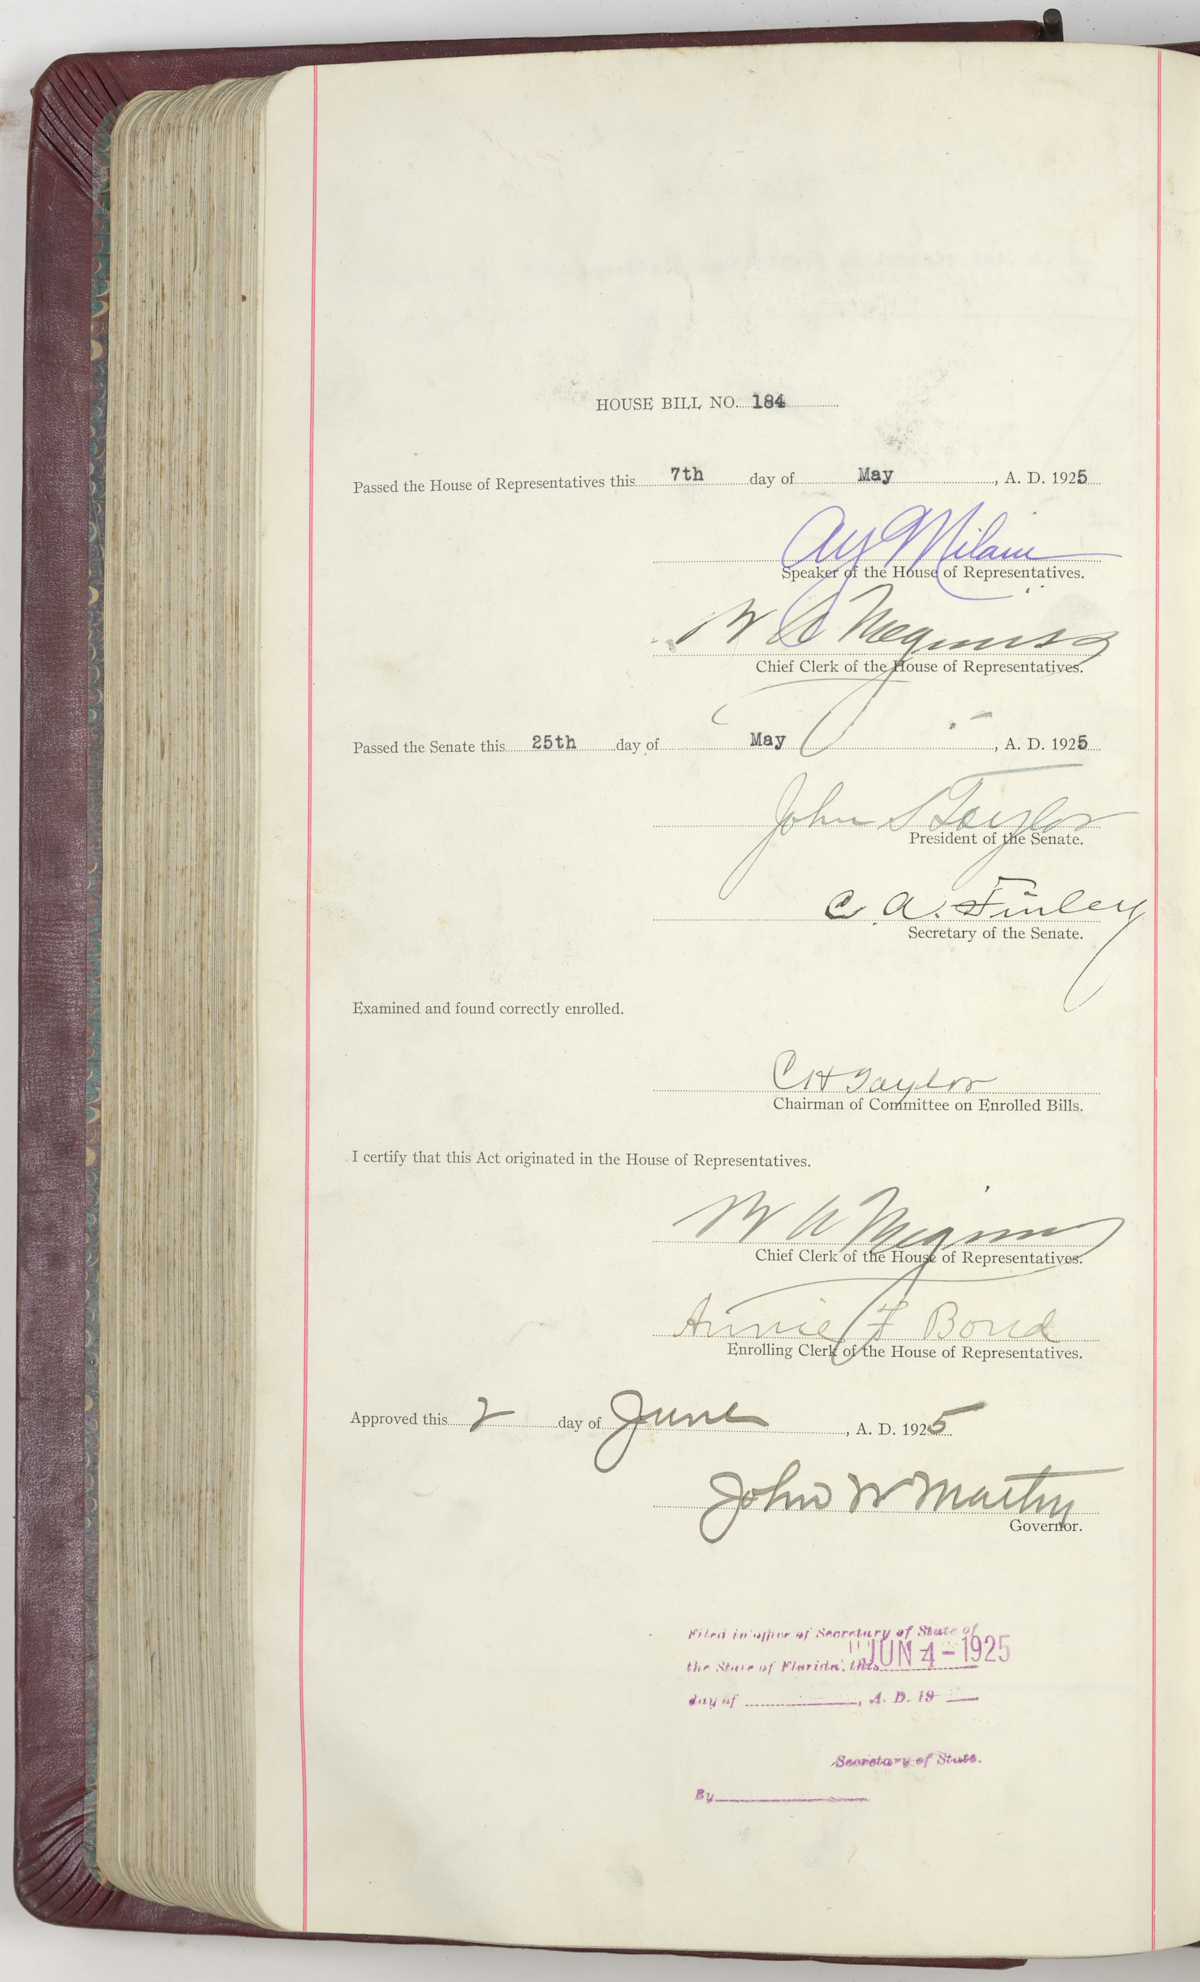 HOUSE BILL NO. 184
Passed the House of Representatives this 7th day of May, A. D. 1925
A Y Milam
Speaker of the House of Representatives.
Chief Clerk of the House of Representatives.
Passed the Senate this 25th day of May, A. D. 1925
John S Taylor
President of the Senate.
C. A. Finley
Secretary of the Senate.
Examined and found correctly enrolled.
C H Taylor
Chairman of Committee on Enrolled Bills.
I certify that this Act originated in the House of Representatives.
Chief Clerk of the House of Representatives.
Annie F Bond
Enrolling Clerk of the House of Representatives.
Approved this 2 day of June, A. D. 1925
John W Martin
Governor.
Filed in office of Secretary of State of
the State of Florida, this JUN 4-1925
day of , A. D. 19
Secretary of State.
By